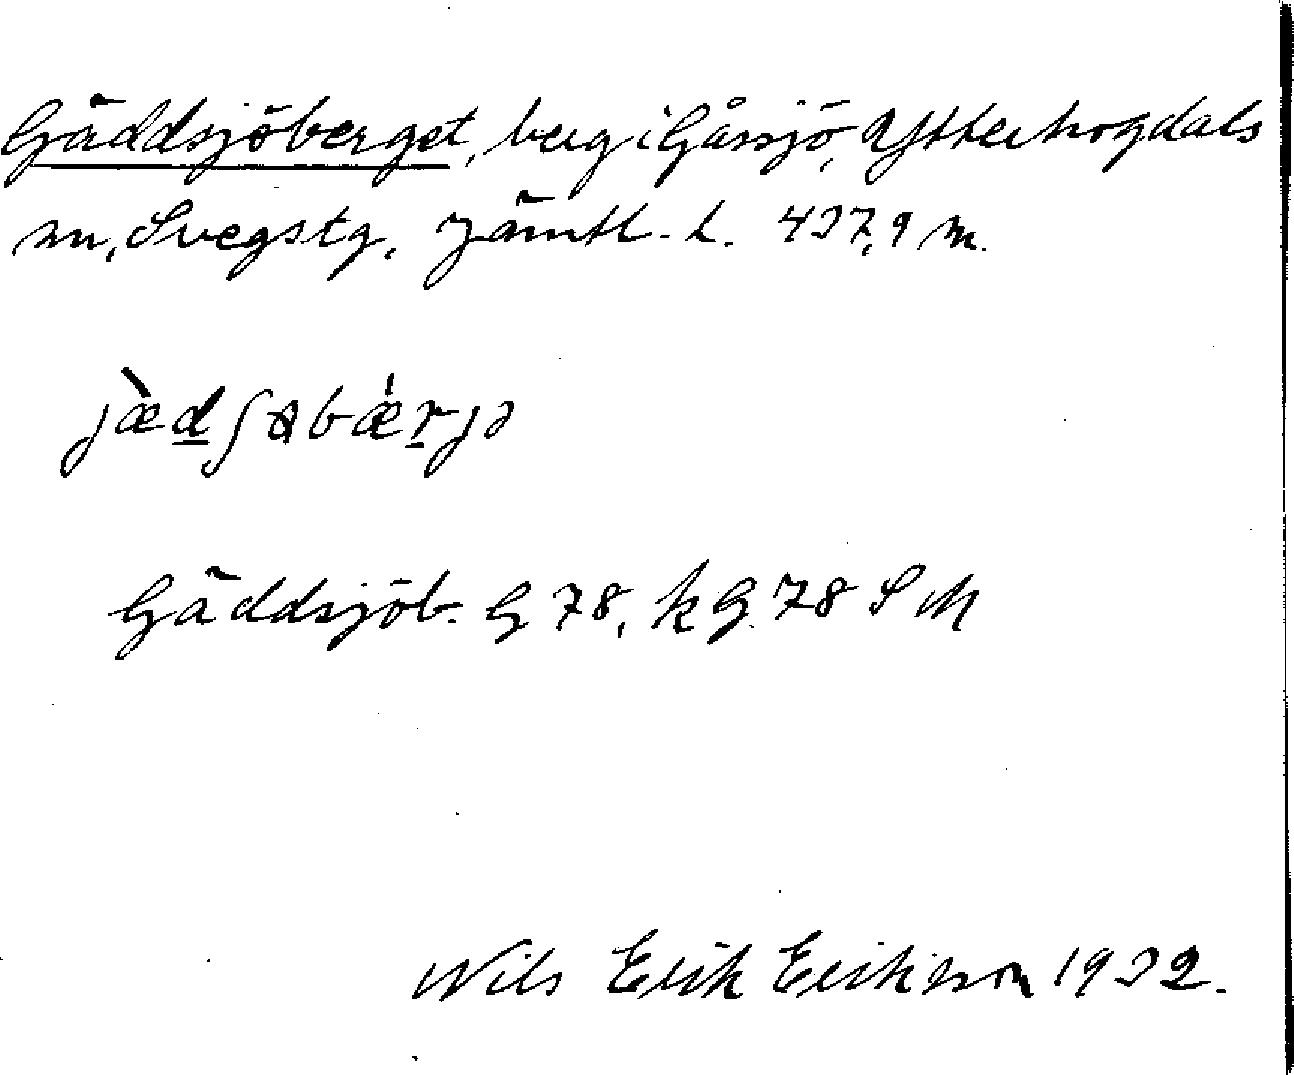 Gäddsjöberget, berg i Gåssjö, Ytterhogdals
sn, Svegs tg, Jämtl. L. 437,9 m.
jæ̀dʃɵbǽrjə
Gäddsjöb. G 78, kG. 78 S M
Nils Erik Eriksson 1932.